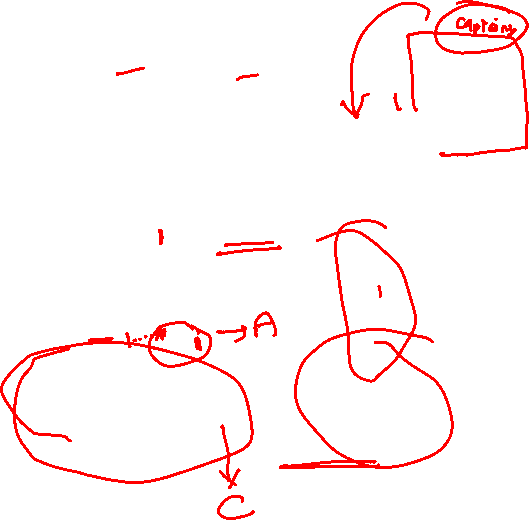 Captain
A
C